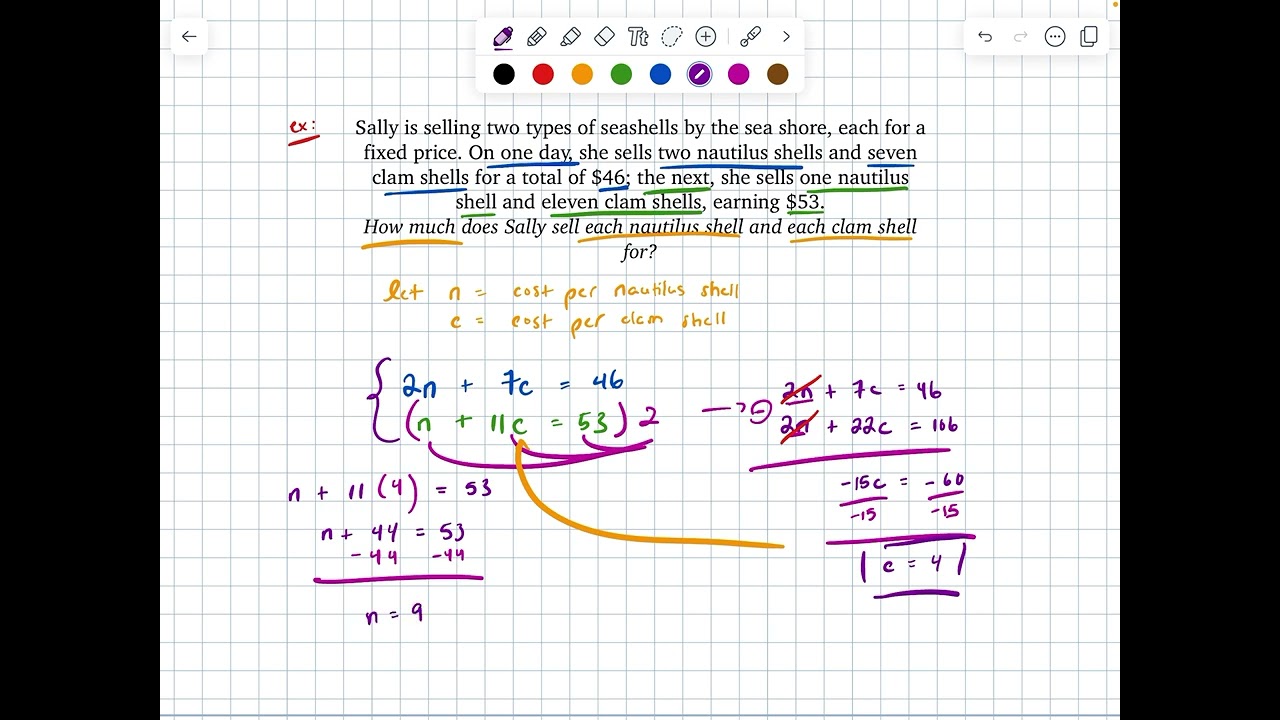 Tt
ex:
Sally is selling two types of seashells by the sea shore, each for a
fixed price. On one day, she sells two nautilus shells and seven
clam shells for a total of $46; the next, she sells one nautilus
shell and eleven clam shells, earning $53.
How much does Sally sell each nautilus shell and each clam shell
for?
let n = cost per nautilus shell
c = cost per clam shell
2n + 7c = 46
(n + 11c = 53) 2
→ ⊖ 2n + 7c = 46
2n + 22c = 106
-15c = -60
-15 -15
c = 4
n + 11(4) = 53
n + 44 = 53
-44 -44
n = 9